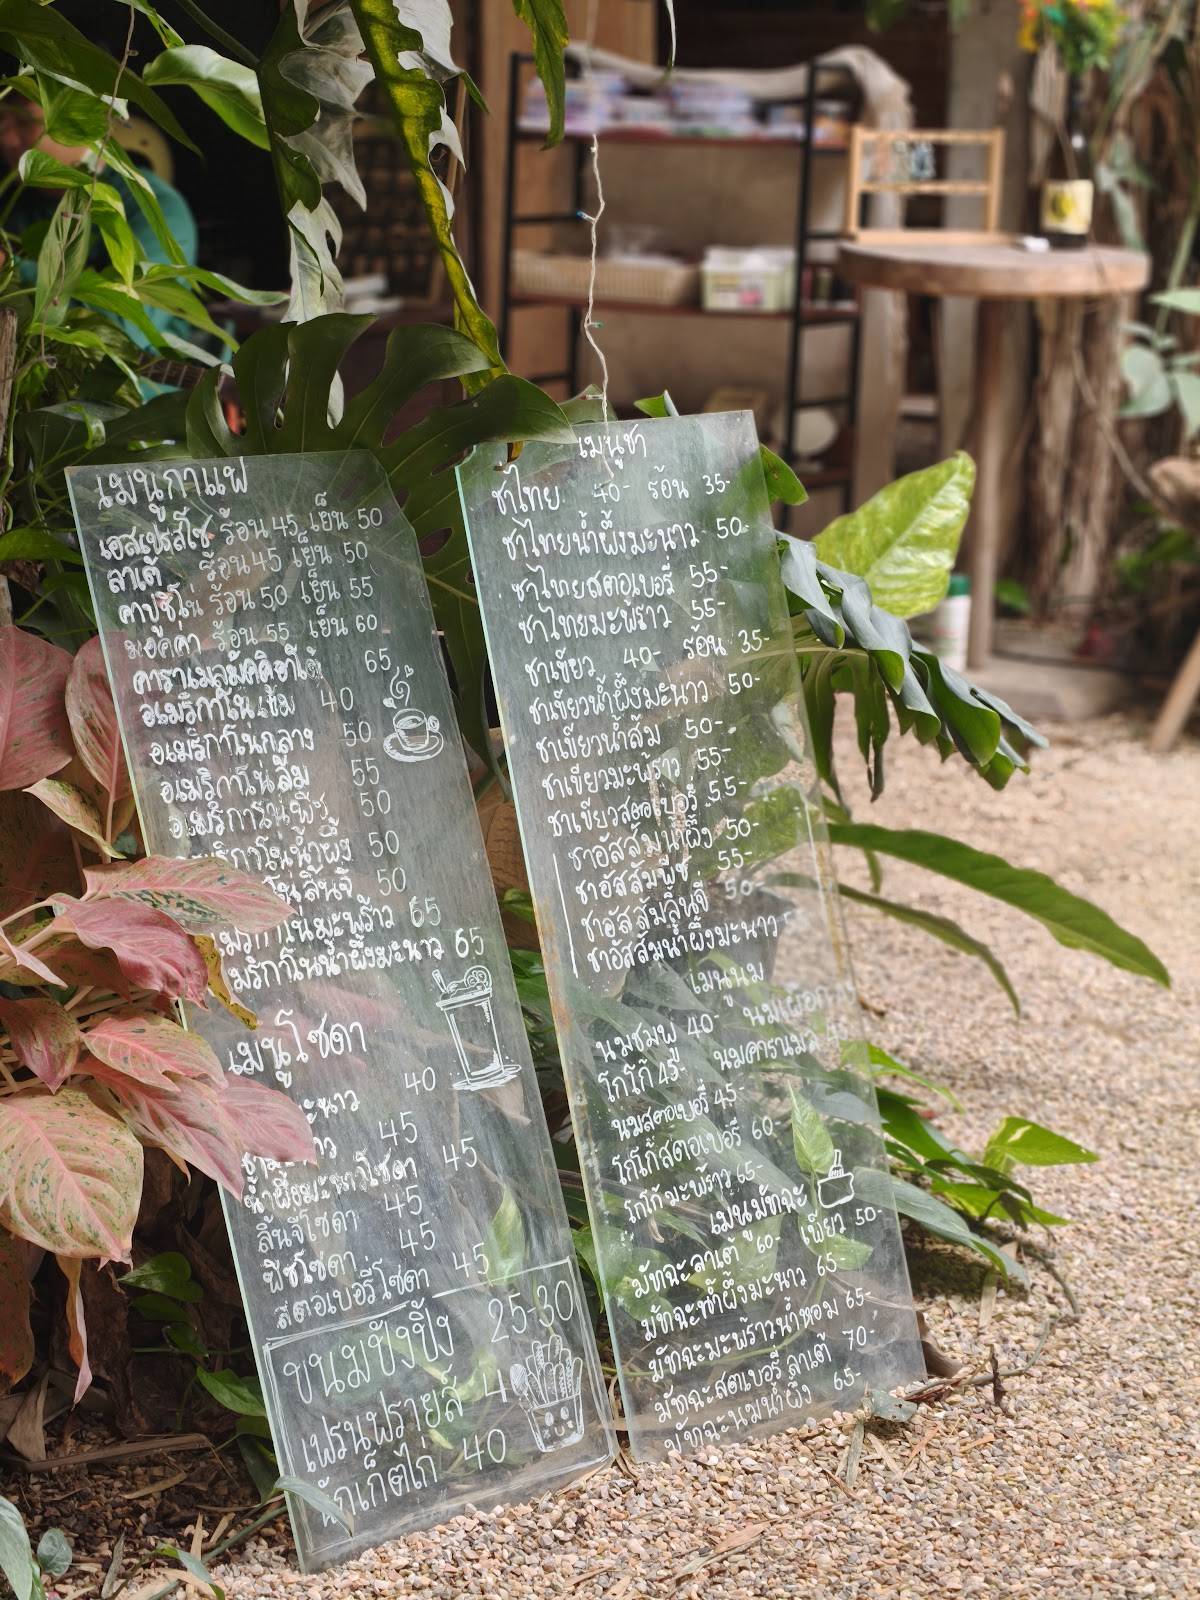 เมนูกาแฟ
เอสเปรสโซ ร้อน 45 เย็น 50
ลาเต้ ร้อน 45 เย็น 50
คาปูชิโน่ ร้อน 50 เย็น 55
มอคคา ร้อน 55 เย็น 60
คาราเมลมัคคิอาโต้ 65
อเมริกาโน่เข้ม 40
อเมริกาโน่กลาง 50
อเมริกาโน่ส้ม 55
อเมริกาโน่พีช 50
เมริกาโน่น้ำผึ้ง 50
โนลิ้นจี่ 50
เมริกาโน่มะพร้าว 65
เมริกาโนน้ำผึ้งมะนาว 65
เมนูโซดา
มะนาว 40
45
น้ำผึ้งมะนาวโซดา 45
ลิ้นจี่โซดา 45
พีชโซดา 45
สตอเบอรี่โซดา 45
ขนมปังปิ้ง 25-30
เฟรนฟรายส์ 4
นักเก็ตไก่ 40
เมนูชา
ชาไทย 40- ร้อน 35-
ชาไทยน้ำผึ้งมะนาว 50-
ชาไทยสตอเบอรี่ 55-
ชาไทยมะพร้าว 55-
ชาเขียว 40- ร้อน 35-
ชาเขียวน้ำผึ้งมะนาว 50-
ชาเขียวน้ำส้ม 50-
ชาเขียวมะพร้าว 55-
ชาเขียวสตอเบอรี่ 55-
ชาอัสสัมน้ำผึ้ง 50-
ชาอัสสัมพีช 55-
ชาอัสสัมลิ้นจี่ 50-
ชาอัสสัมน้ำผึ้งมะนาว
เมนูนม
นมชมพู 40- นมเผือก
โกโก้ 45- นมคาราเมล 45
นมสตอเบอรี่ 45-
โกโก้สตอเบอรี่ 60-
โกโก้มะพร้าว 65-
เมนูมัทฉะ
มัทฉะลาเต้ 60- เพียว 50-
มัทฉะน้ำผึ้งมะนาว 65-
มัทฉะมะพร้าวน้ำหอม 65-
มัทฉะสตอเบอรี่ลาเต้ 70-
มัทฉะนมน้ำผึ้ง 65-